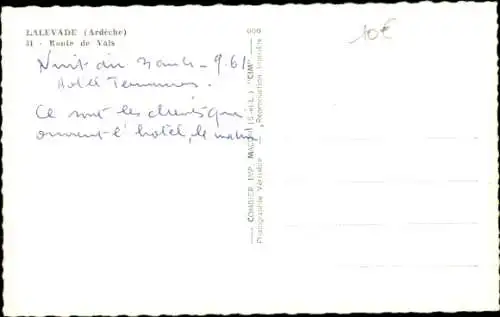 LALEVADE (Ardèche)
31 - Route de Vals
Nuit du 3 août - 9.61
Hotel Terminus.
Ce sont les clients qui
ouvrent l'hotel, le matin
10€
COMBIER IMP. MACON (S.-et-L.) "CIM"
Photographie Véritable - Reproduction Interdite